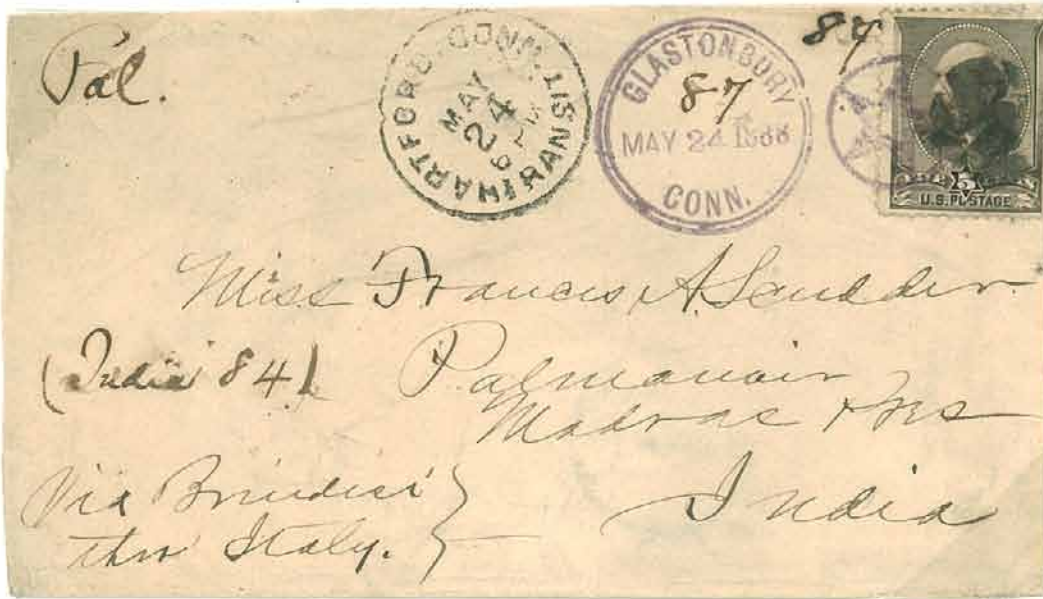 Pal.
HARTFORD, CONN. TRANSIT
MAY
24
6
GLASTONBURY
87
MAY 24 1888
CONN.
87
5
U.S. POSTAGE
Miss Frances A. Scudder.
(India 84)
Palmanair
Madras Pres
India
Via Brindisi
thro Italy.